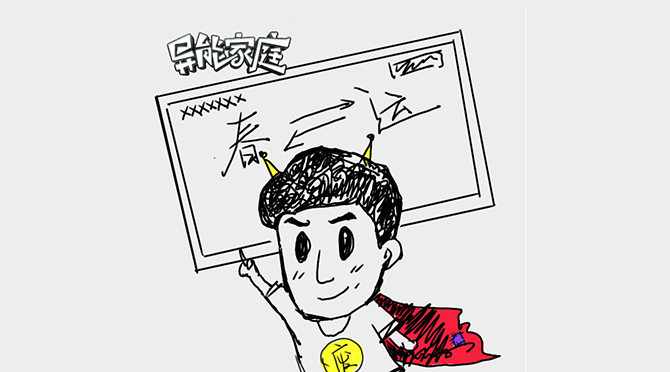 异能家庭
XXXXXXX
春 运
废